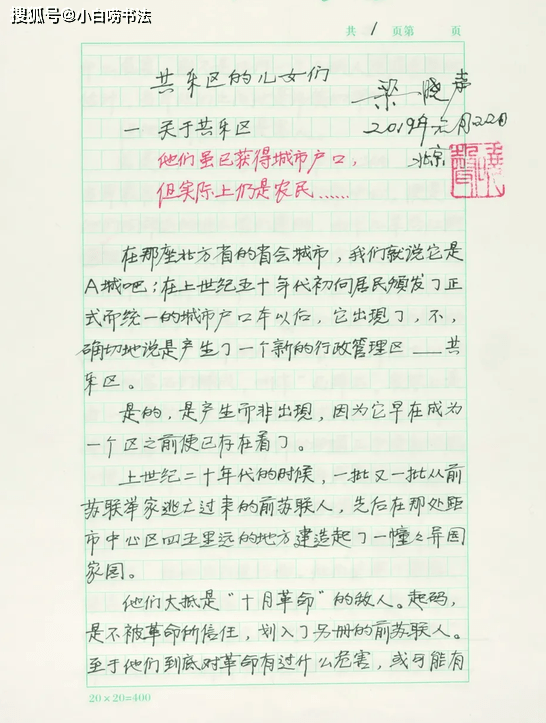 搜狐号@小白唠书法
共 1 页第 页
共乐区的儿女们
梁晓声
一 关于共乐区
2019年元月22日
他们虽已获得城市户口，
北京
但实际上仍是农民……
在那座北方省的省会城市，我们就说它是
A城吧；在上世纪五十年代初向居民颁发了正
式而统一的城市户口本以后，它出现了，不，
确切地说是产生了一个新的行政管理区——共
乐区。
是的，是产生而非出现，因为它早在成为
一个区之前便已存在着了。
上世纪二十年代的时候，一批又一批从前
苏联举家逃亡过来的前苏联人，先后在那处距
市中心区四五里远的地方建造起了一幢々异国
家园。
他们大抵是“十月革命”的敌人。起码，
是不被革命所信任，划入了另册的前苏联人。
至于他们到底对革命有过什么危害，或可能有
20×20=400